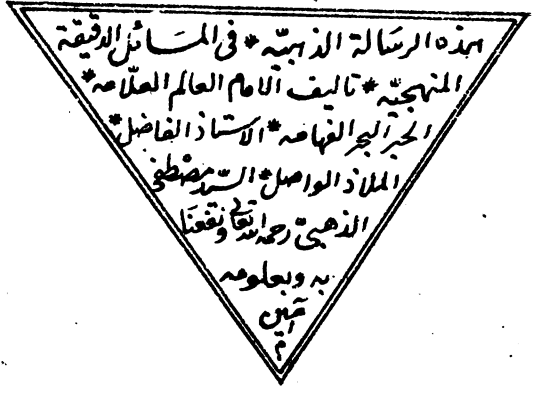 هذه الرسالة الذهبيّه * فى المسائل الدقيقة
المنهجيّه * تاليف الامام العالم العلّامه *
الحبر البحر الفهامه * الاستاذ الفاضل *
الملاذ الواصل * السيّد مصطفى
الذهبىّ رحمه الله تعالى ونفعنا
به وبعلومه
آمين
م